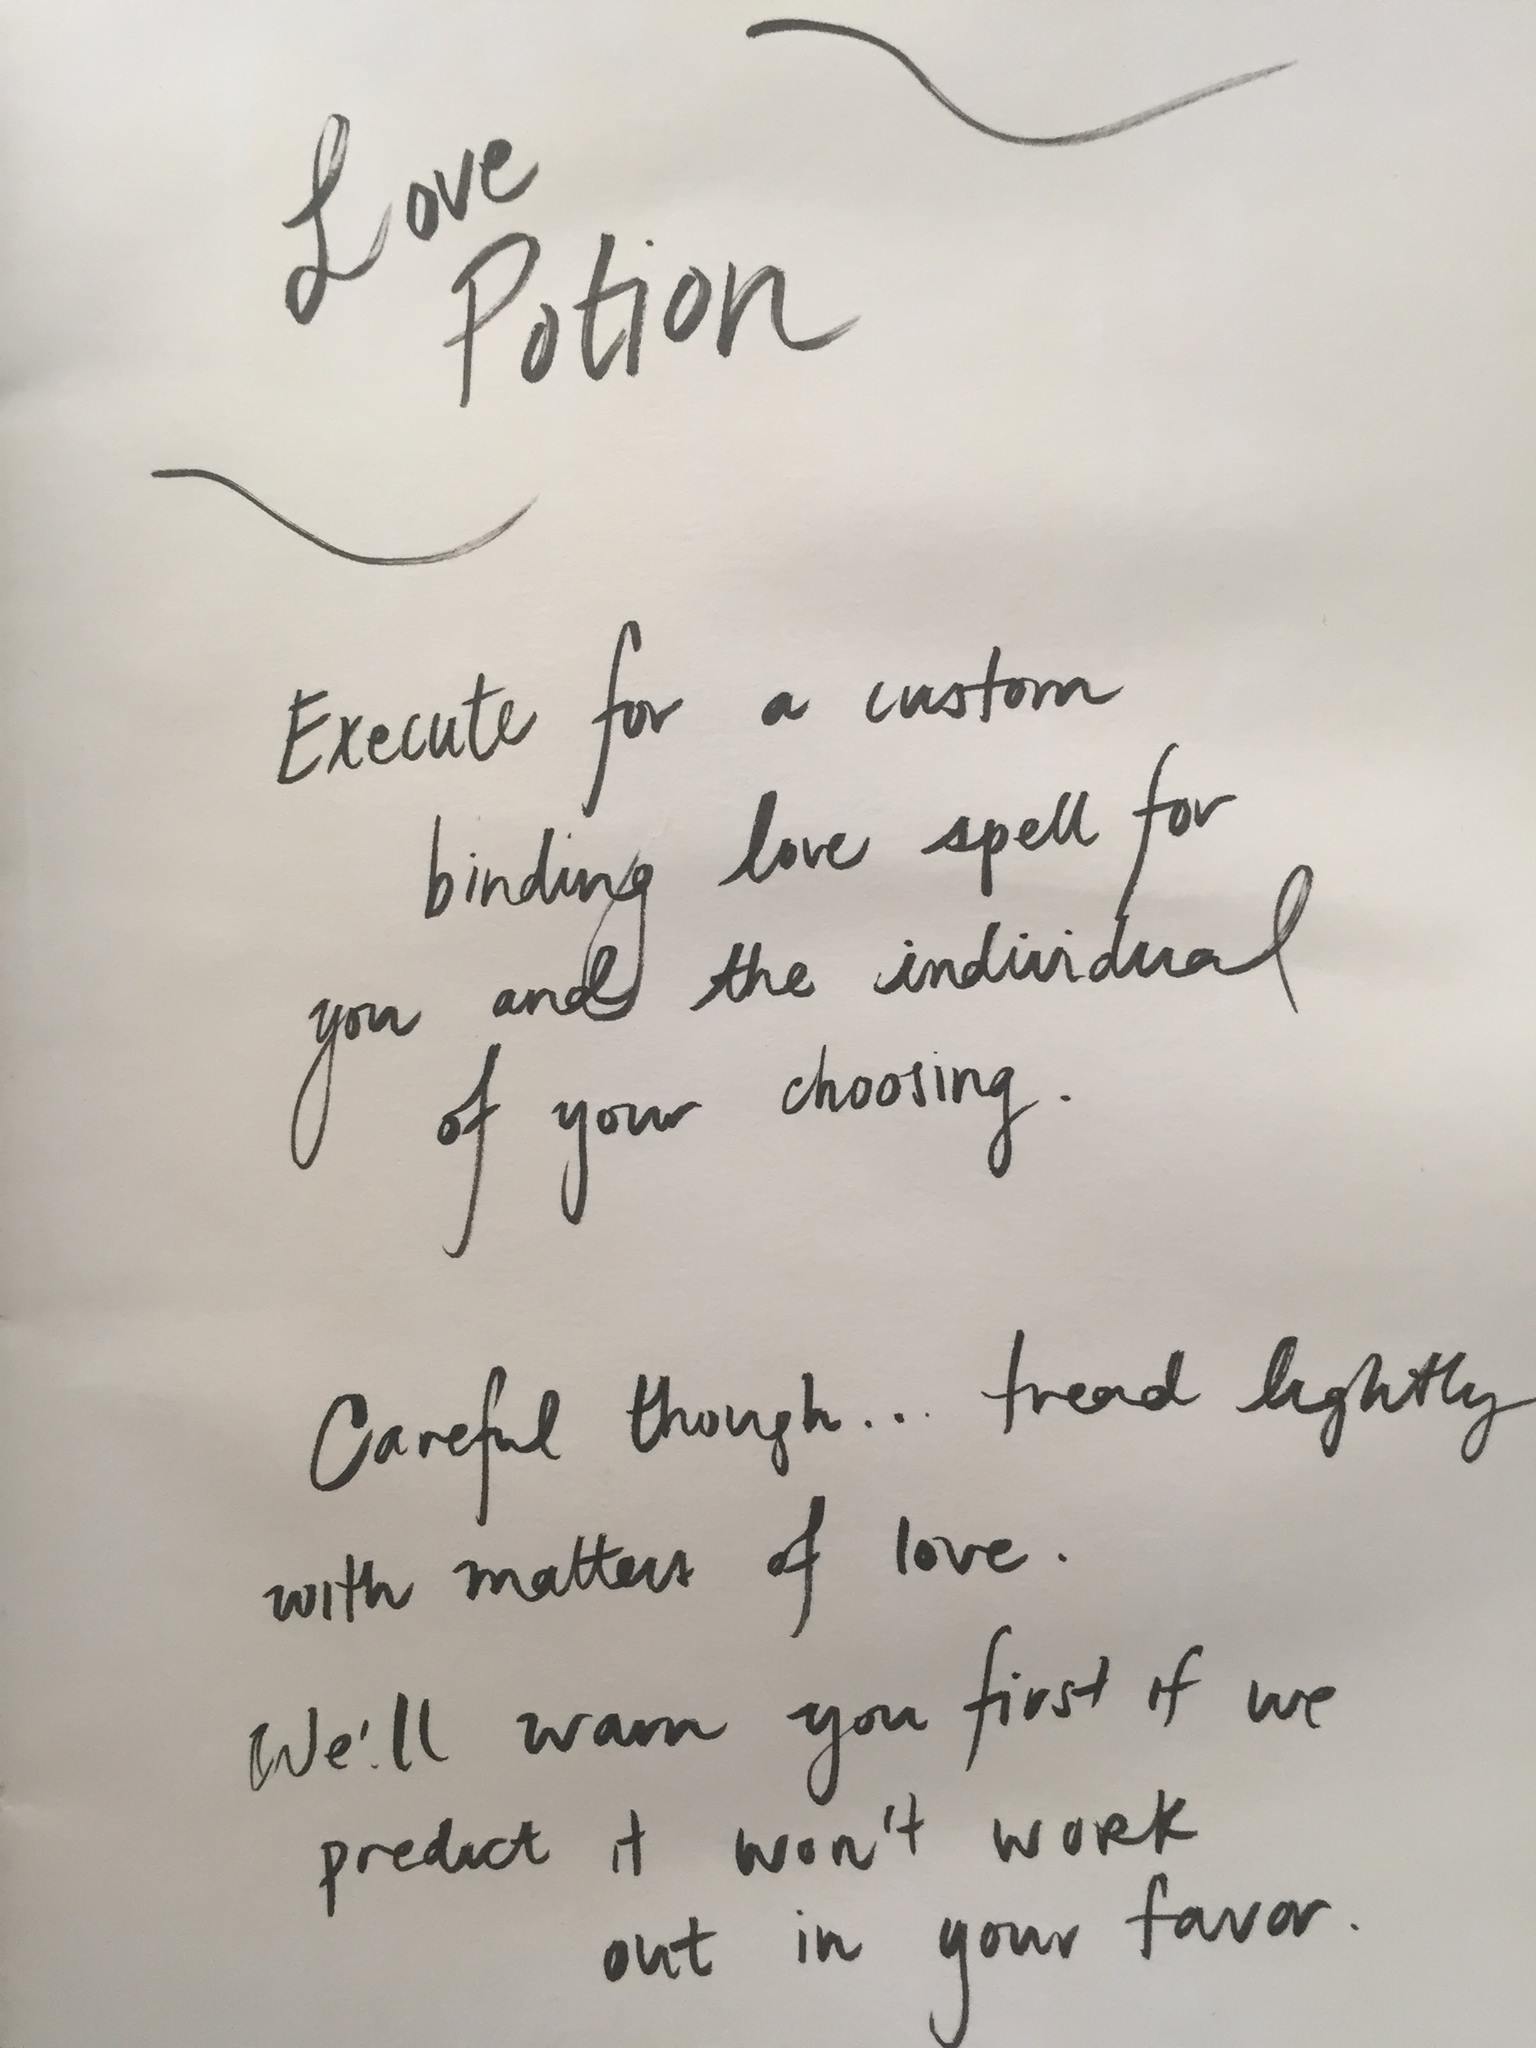 Love
Potion
Execute for a custom
binding love spell for
you and the individual
of your choosing.
Careful though... tread lightly
with matters of love.
We'll warn you first if we
predict it won't work
out in your favor.